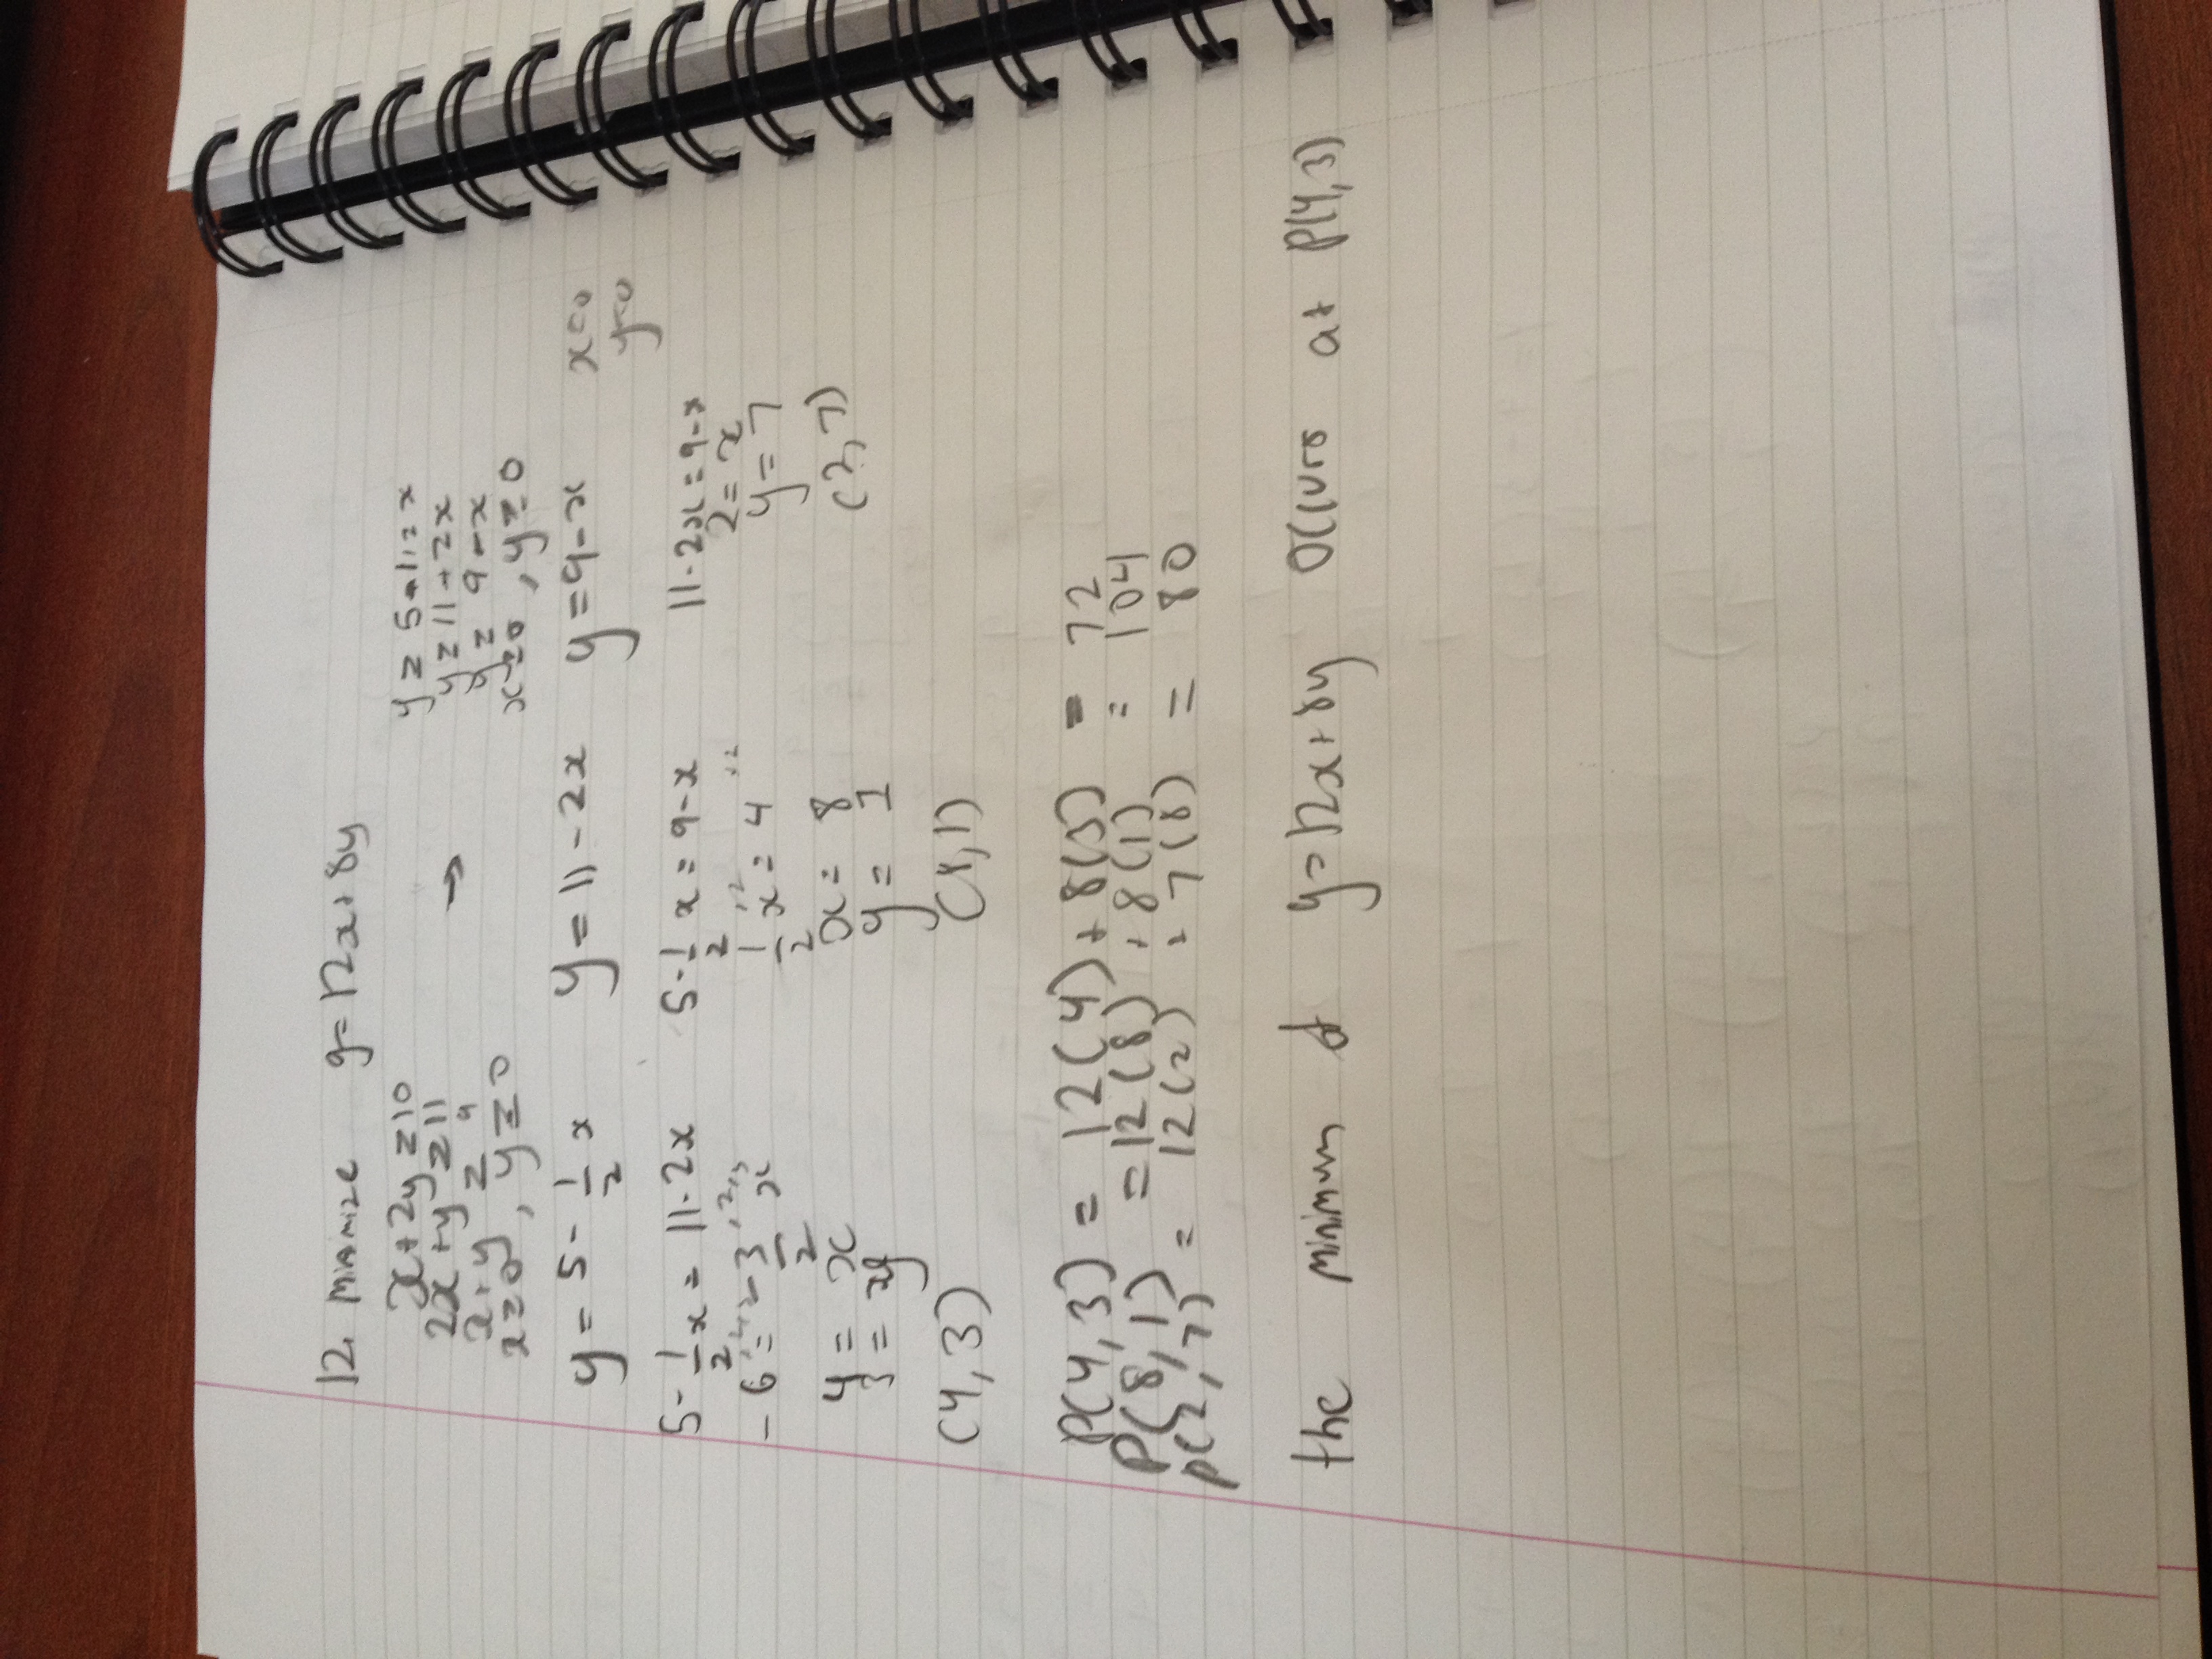 12. Minamize g = 12x + 8y
x + 2y ≥ 10
2x + y ≥ 11
x + y ≥ 9
x ≥ 0, y ≥ 0
→
y ≥ 5 - 1/2 x
y ≥ 11 - 2x
y ≥ 9 - x
x ≥ 0, y ≥ 0
y = 5 - 1/2 x y = 11 - 2x y = 9 - x x=0
y=0
5 - 1/2 x = 11 - 2x
-6 = - 3/2 x
4 = x
3 = y
(4, 3)
5 - 1/2 x = 9 - x
1/2 x = 4
x = 8
y = 1
(8, 1)
11 - 2x = 9 - x
2 = x
y = 7
(2, 7)
P(4, 3) = 12(4) + 8(3) = 72
P(8, 1) = 12(8) + 8(1) = 104
P(2, 7) = 12(2) + 7(8) = 80
the minimum of y = 12x + 8y occurs at P(4, 3)